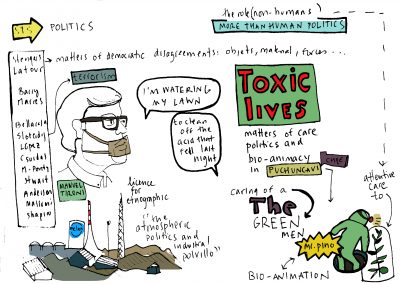 STS
POLITICS
the role (non-humans)
MORE THAN HUMAN POLITICS
Stengers
Latour
Barry
Marres
Bellacasa
Sloterdij
López
Csordas
M. Ponty
Stewart
Anderson
Shapin
matters of democratic disagreements: objects, material, forces...
terrorism
I'M WATERING
MY LAWN
to clean
off the
acid that
fell last
night
TOXIC
lives
matters of care
politics and
bio-animacy
in PUCHUNCAVÍ
MANUEL
TIRONI
licence for
etnographic
"the
atmospheric
politics and
industrial
polvillo"
caring of a
The
GREEN
MEN
Mr. Pino
BIO-ANIMATION
attentive
care to